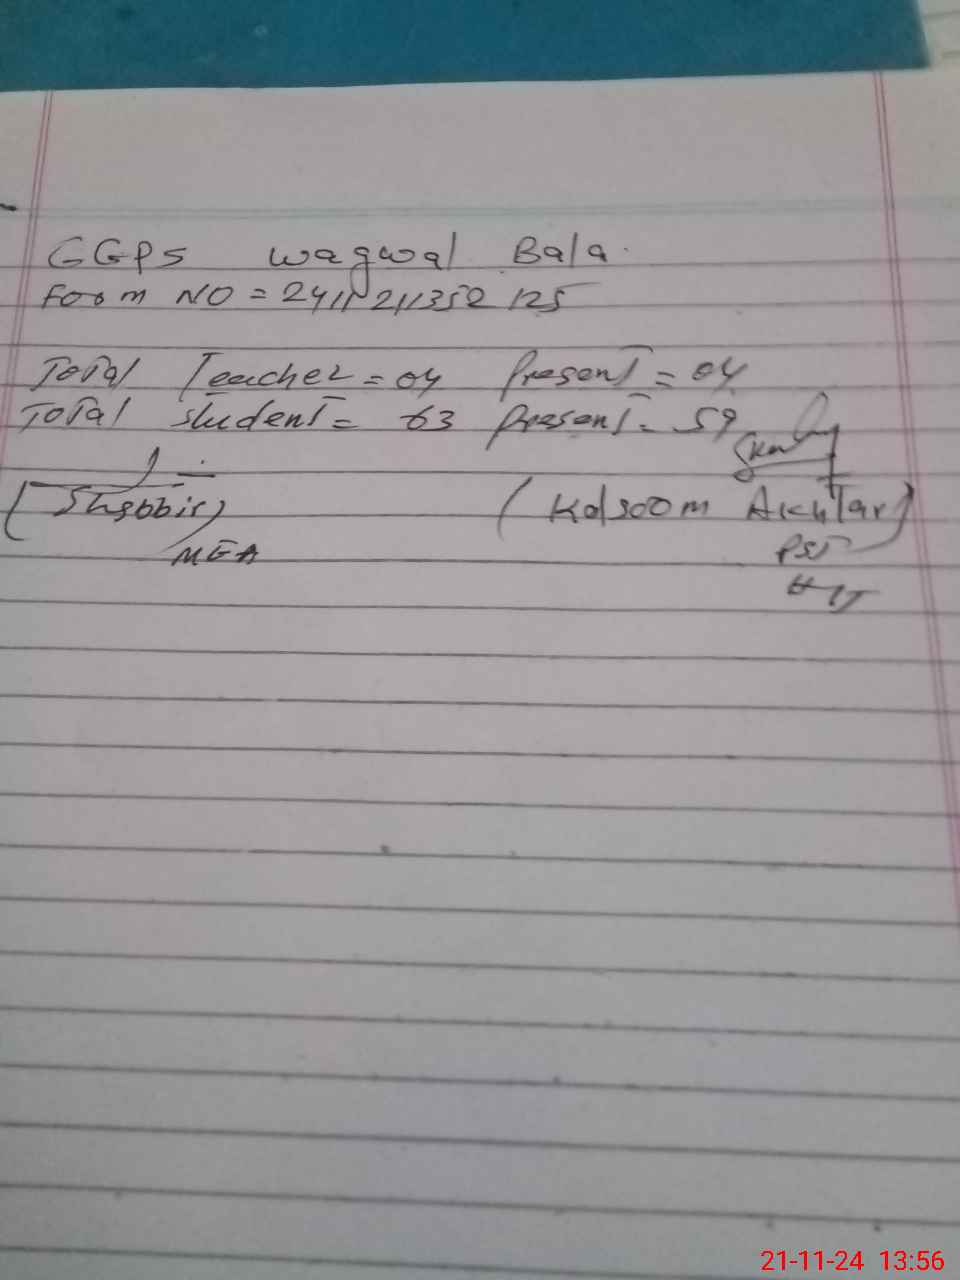 GGPS Wagwal Bala.
Form NO = 2411211352125
Total Teacher = 04 Present = 04
Total Student = 63 Present = 59
(Shabbir) (Kalsoom Akhtar)
MEA PST
HT
21-11-24 13:56